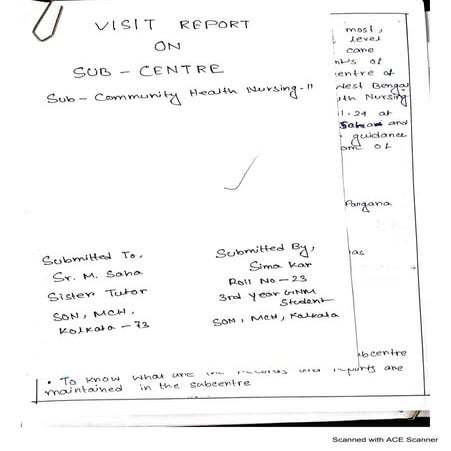 VISIT REPORT
ON
SUB - CENTRE
Sub - Community Health Nursing - II
Submitted To,
Sr. M. Saha
Sister Tutor
SON, MCH,
Kolkata - 73
Submitted By,
Sima Kar
Roll No - 23
3rd Year GNM
Student
SON, MCH, Kolkata
most,
level
care
nt's of
entre of
West Bengal
lth Nursing
1.24 at
and
guidance
of
Pargana
as
ubcentre
• To know what are the records and reports are
maintained in the subcentre
Scanned with ACE Scanner